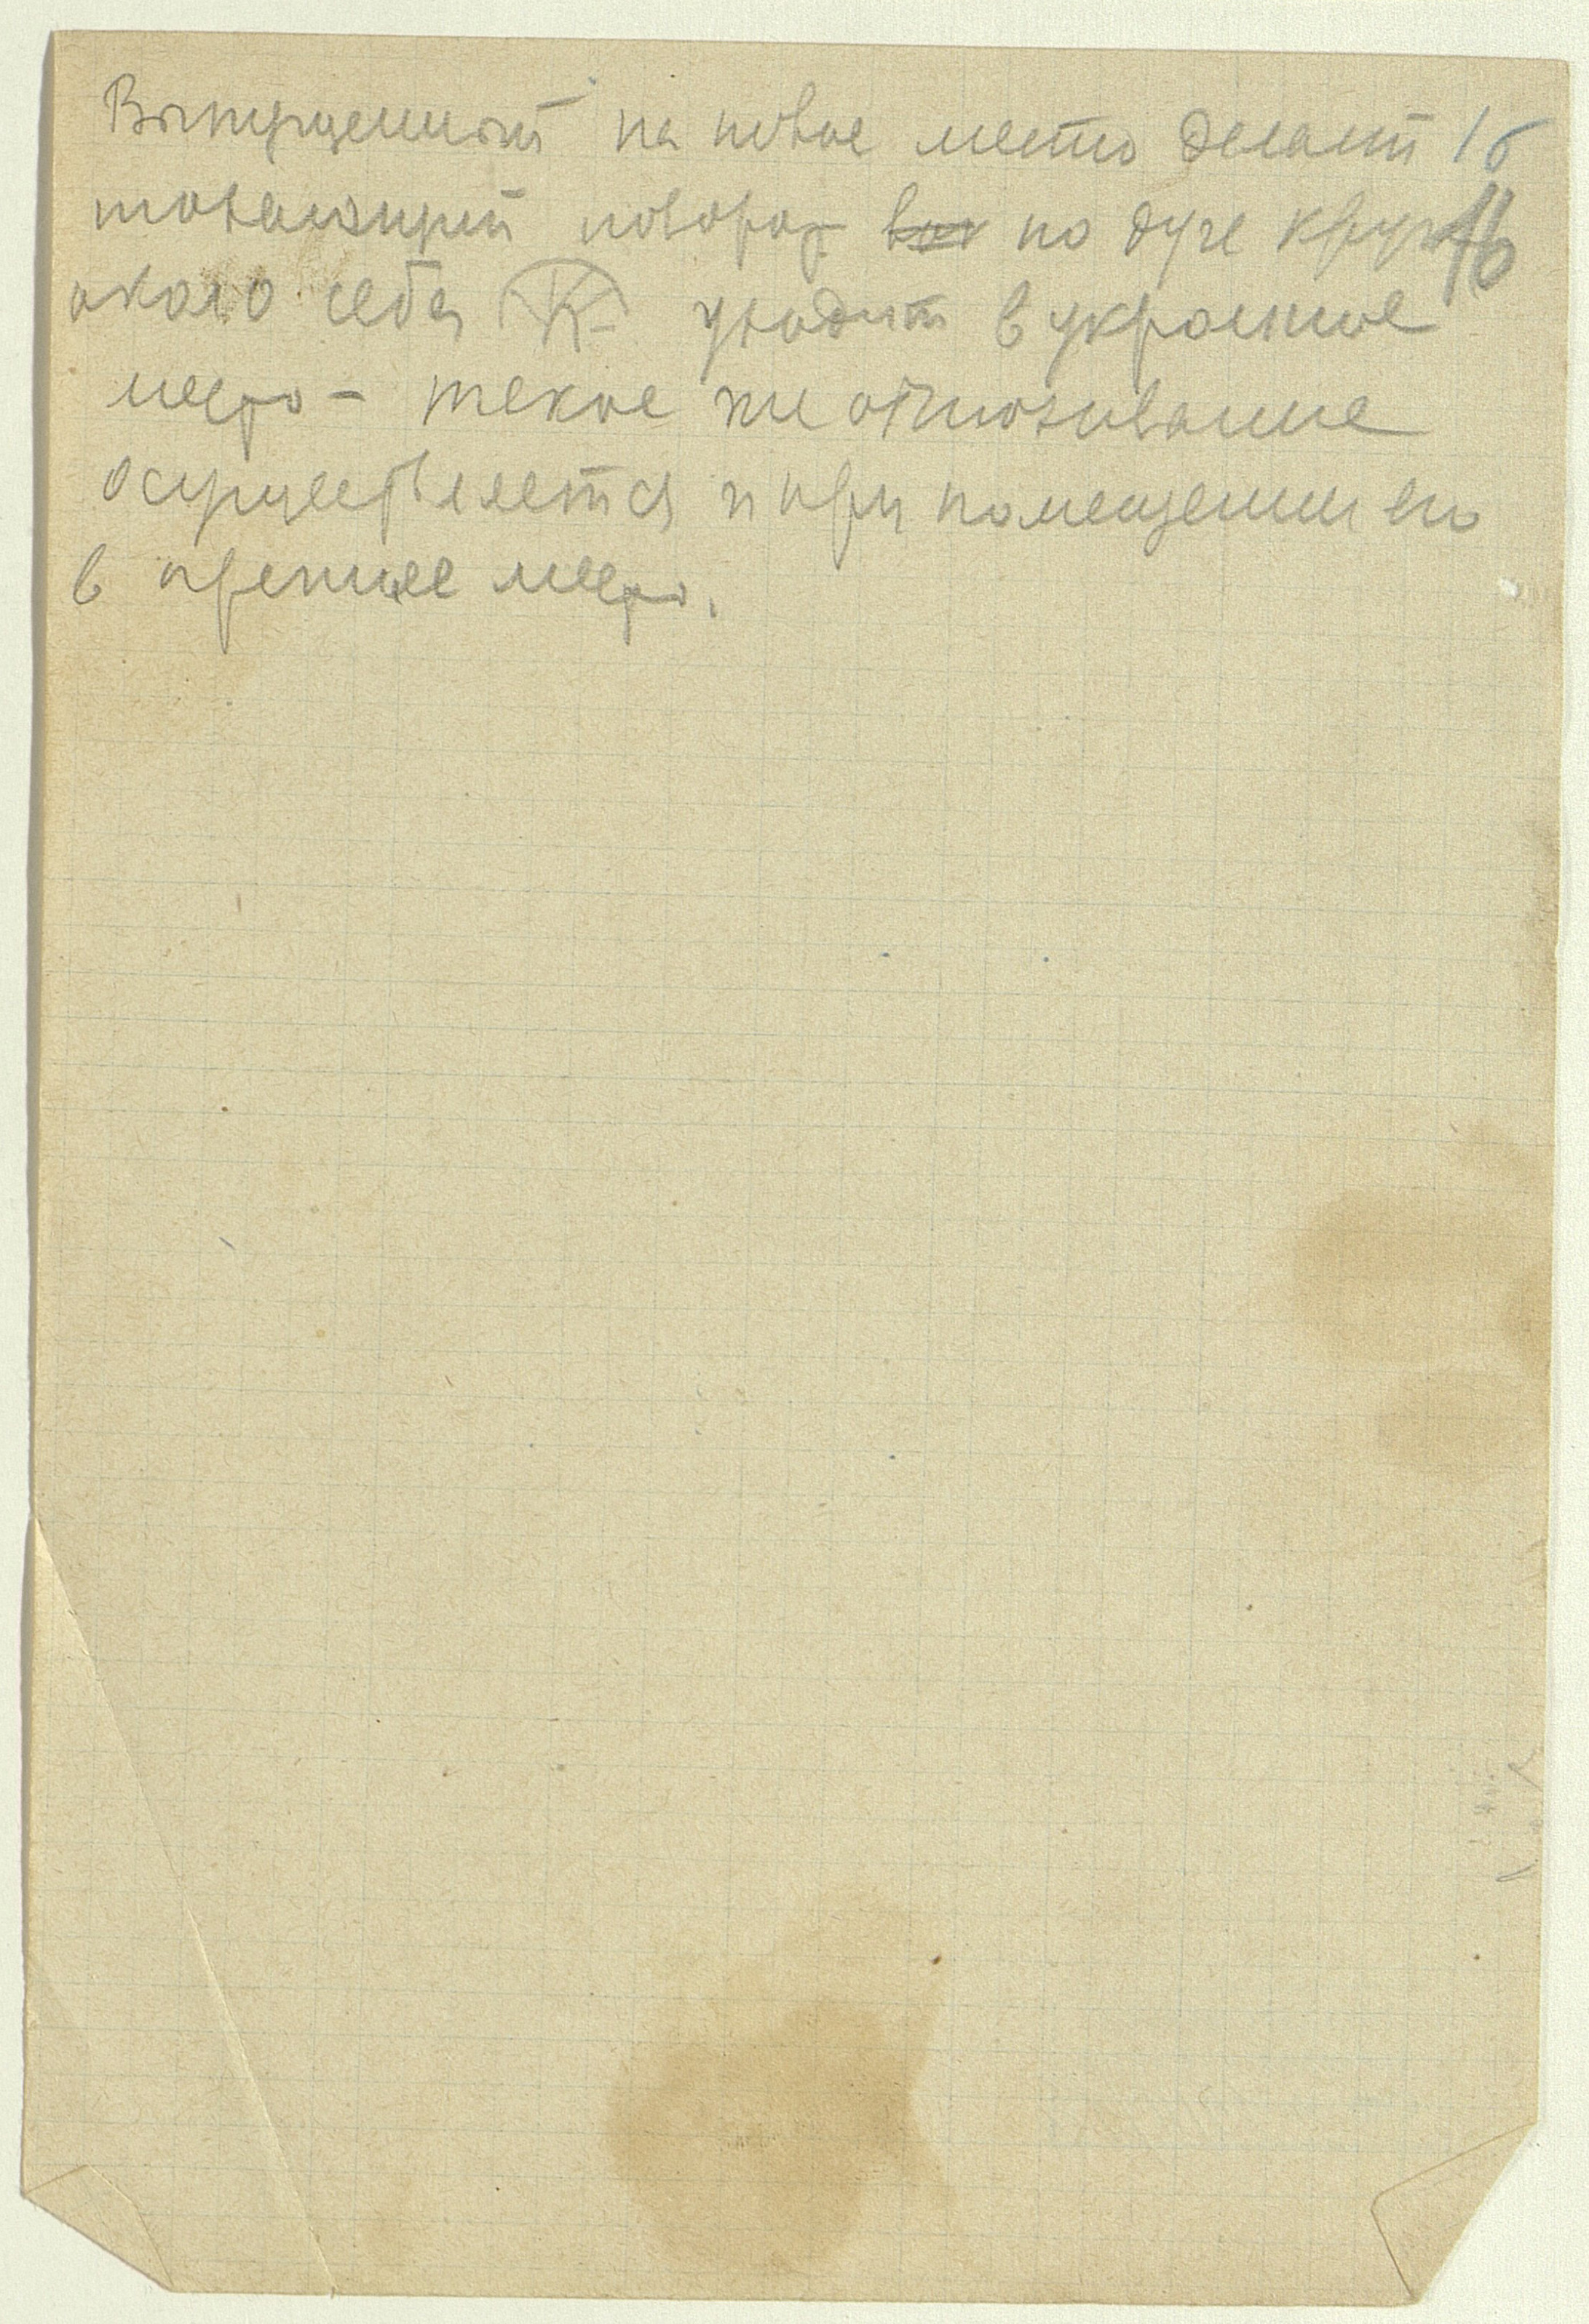 Выпущенный на новое место делает 16
поворот по дуге круга 16
около себя уходит в укромное
место – такое же
осуществляется и при помещении его
в прежнее место.